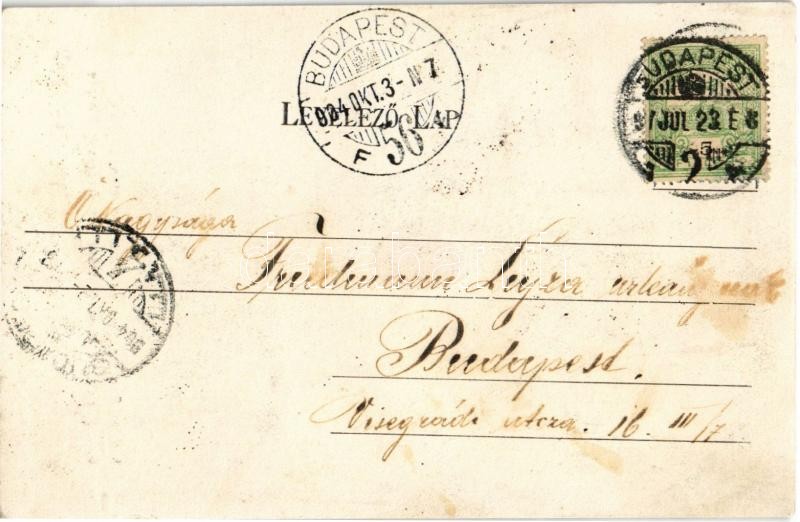 BUDAPEST
924 OKT. 3 - N 7
56
F
LEVELEZŐ LAP
BUDAPEST
JUL 23 E 6
5
Ő Nagysága
Friedmann Lujza
Budapest.
Visegrádi utcza. 16. III/7